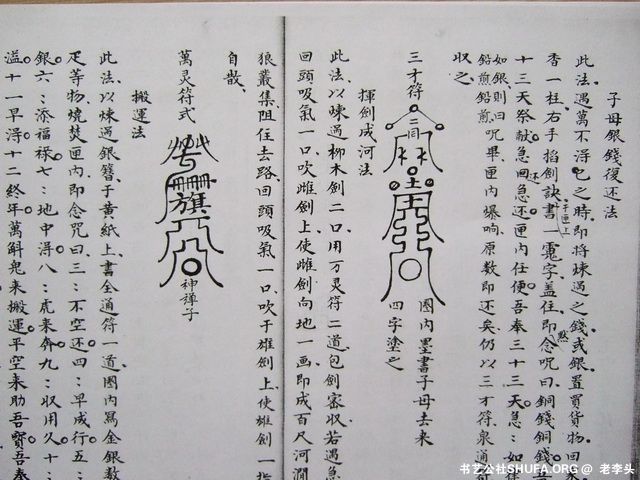 子母銀錢復还法
此法遇萬不得已之時即将煉過之錢或銀置買貨物回来
香一柱右手掐劍訣書一霓字盖住即念咒曰銅錢銅錢
于匣上
默
十三天祭献急回急还匣内任便吾奉三十三天急如律
还
如銀則曰
鉛煎鉛煎咒畢匣内爆响原数即还矣仍以三才符泉通
収之
三才符
圈内墨書子母去来
四字塗之
揮劍成河法
此法以煉過柳木劍二口用万灵符二道包劍密収若遇急
回頭吸氣一口吹雌劍上使雌劍向地一画即成百尺河澗
狼叢集阻住去路回頭吸氣一口吹于雄劍上使雄劍一指
自散
萬灵符式
神禅子
搬運法
此法以煉過銀簪子黄紙上書全道符一道圈内写金銀数
疋等物燒焚匣内即念咒曰三不空还四早成行五
銀六添福禄七地中得八虎来奔九収用久十
溢十一早得十二終年萬斛鬼来搬運平空来助吾寳吾奉
书艺公社SHUFA.ORG @ 老李头